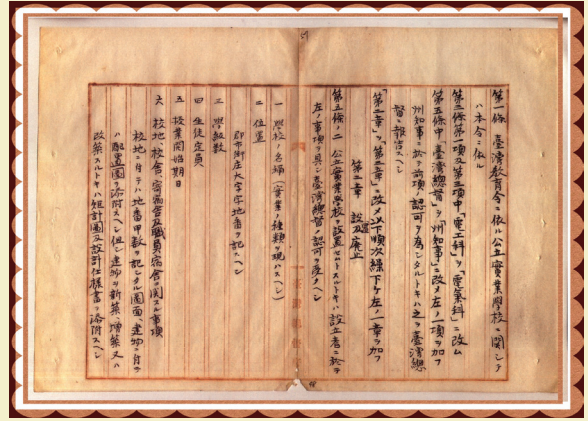 第一條 臺灣教育令ニ依ル公立實業學校ニ關シテ
ハ本令ニ依ル
第三條第一項及第三項中「電工科」ヲ「電氣科」ニ改ム
第五條中「臺灣總督」ヲ「州知事」ニ改メ左ノ一項ヲ加フ
州知事ニ於テ前項ノ認可ヲ為シタルトキハ之ヲ臺灣總
督ニ報告スヘシ
「第二章」ヲ「第三章」ニ改メ以下順次繰下ケ左ノ一章ヲ加フ
第二章 設置及廢止
第五條ノ二 公立實業學校ヲ設置セムトスルトキハ設立者ニ於テ
左ノ事項ヲ具シ臺灣總督ノ認可ヲ受クヘシ
一 學校ノ名稱(實業ノ種類ヲ現ハスヘシ)
二 位置
郡市街庄大字字地番ヲ記スヘシ
三 學級數
四 生徒定員
五 授業開始期日
六 校地、校舍、寄宿舍及職員宿舍ニ關スル事項
校地ニ付テハ地番甲數ヲ記シタル圖面、建物ニ付テ
ハ配置圖ヲ添附スヘシ但シ建物ヲ新築、增築又ハ
改築スルトキハ設計圖及設計仕樣書ヲ添附スヘシ
臺灣總督府